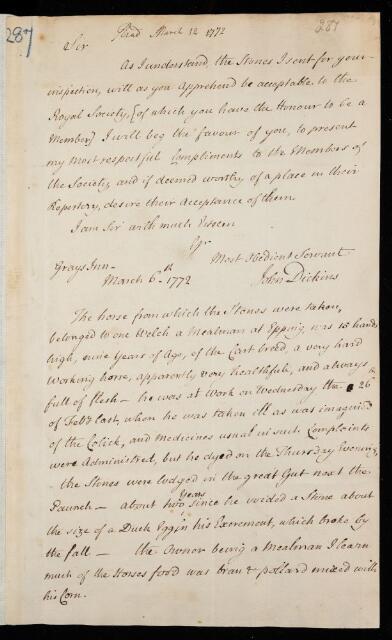 287
287
Read March 12 1772
Sir
As I understand, the Stones I sent for your
inspection, will as you apprehend be acceptable to the
Royal Society, [of which you have the Honour to be a
Member] I will beg the favour of you, to present
my most respectful Compliments to the Members of
the Society, and if deemed worthy of a place in their
Repertory, desire their Acceptance of them.
I am Sir with much Esteem
Yr
Most Obedient Servant
Grays Inn
John Dickins
March 6th 1772
The horse from which the Stones were taken,
belonged to one Welch a Mealman at Epping, was 15 hands
high, nine years of Age, of the Cart breed, a very hard
working horse, apparently very healthful, and always
full of flesh - he was at work on Wednesday the 26th
of Febry last, when he was taken ill as was imagined
of the Colick, and Medicines usual in such Complaints
were Administred, but he dyed on the Thursday Evening
- the Stones were lodged in the great Gut next the
Paunch - about two years since he voided a Stone about
the size of a Duck Egg in his Excrement, which broke by
the fall - the Owner being a Mealman I learn
much of the Horses food was bran & pollard mixed with
his Corn.